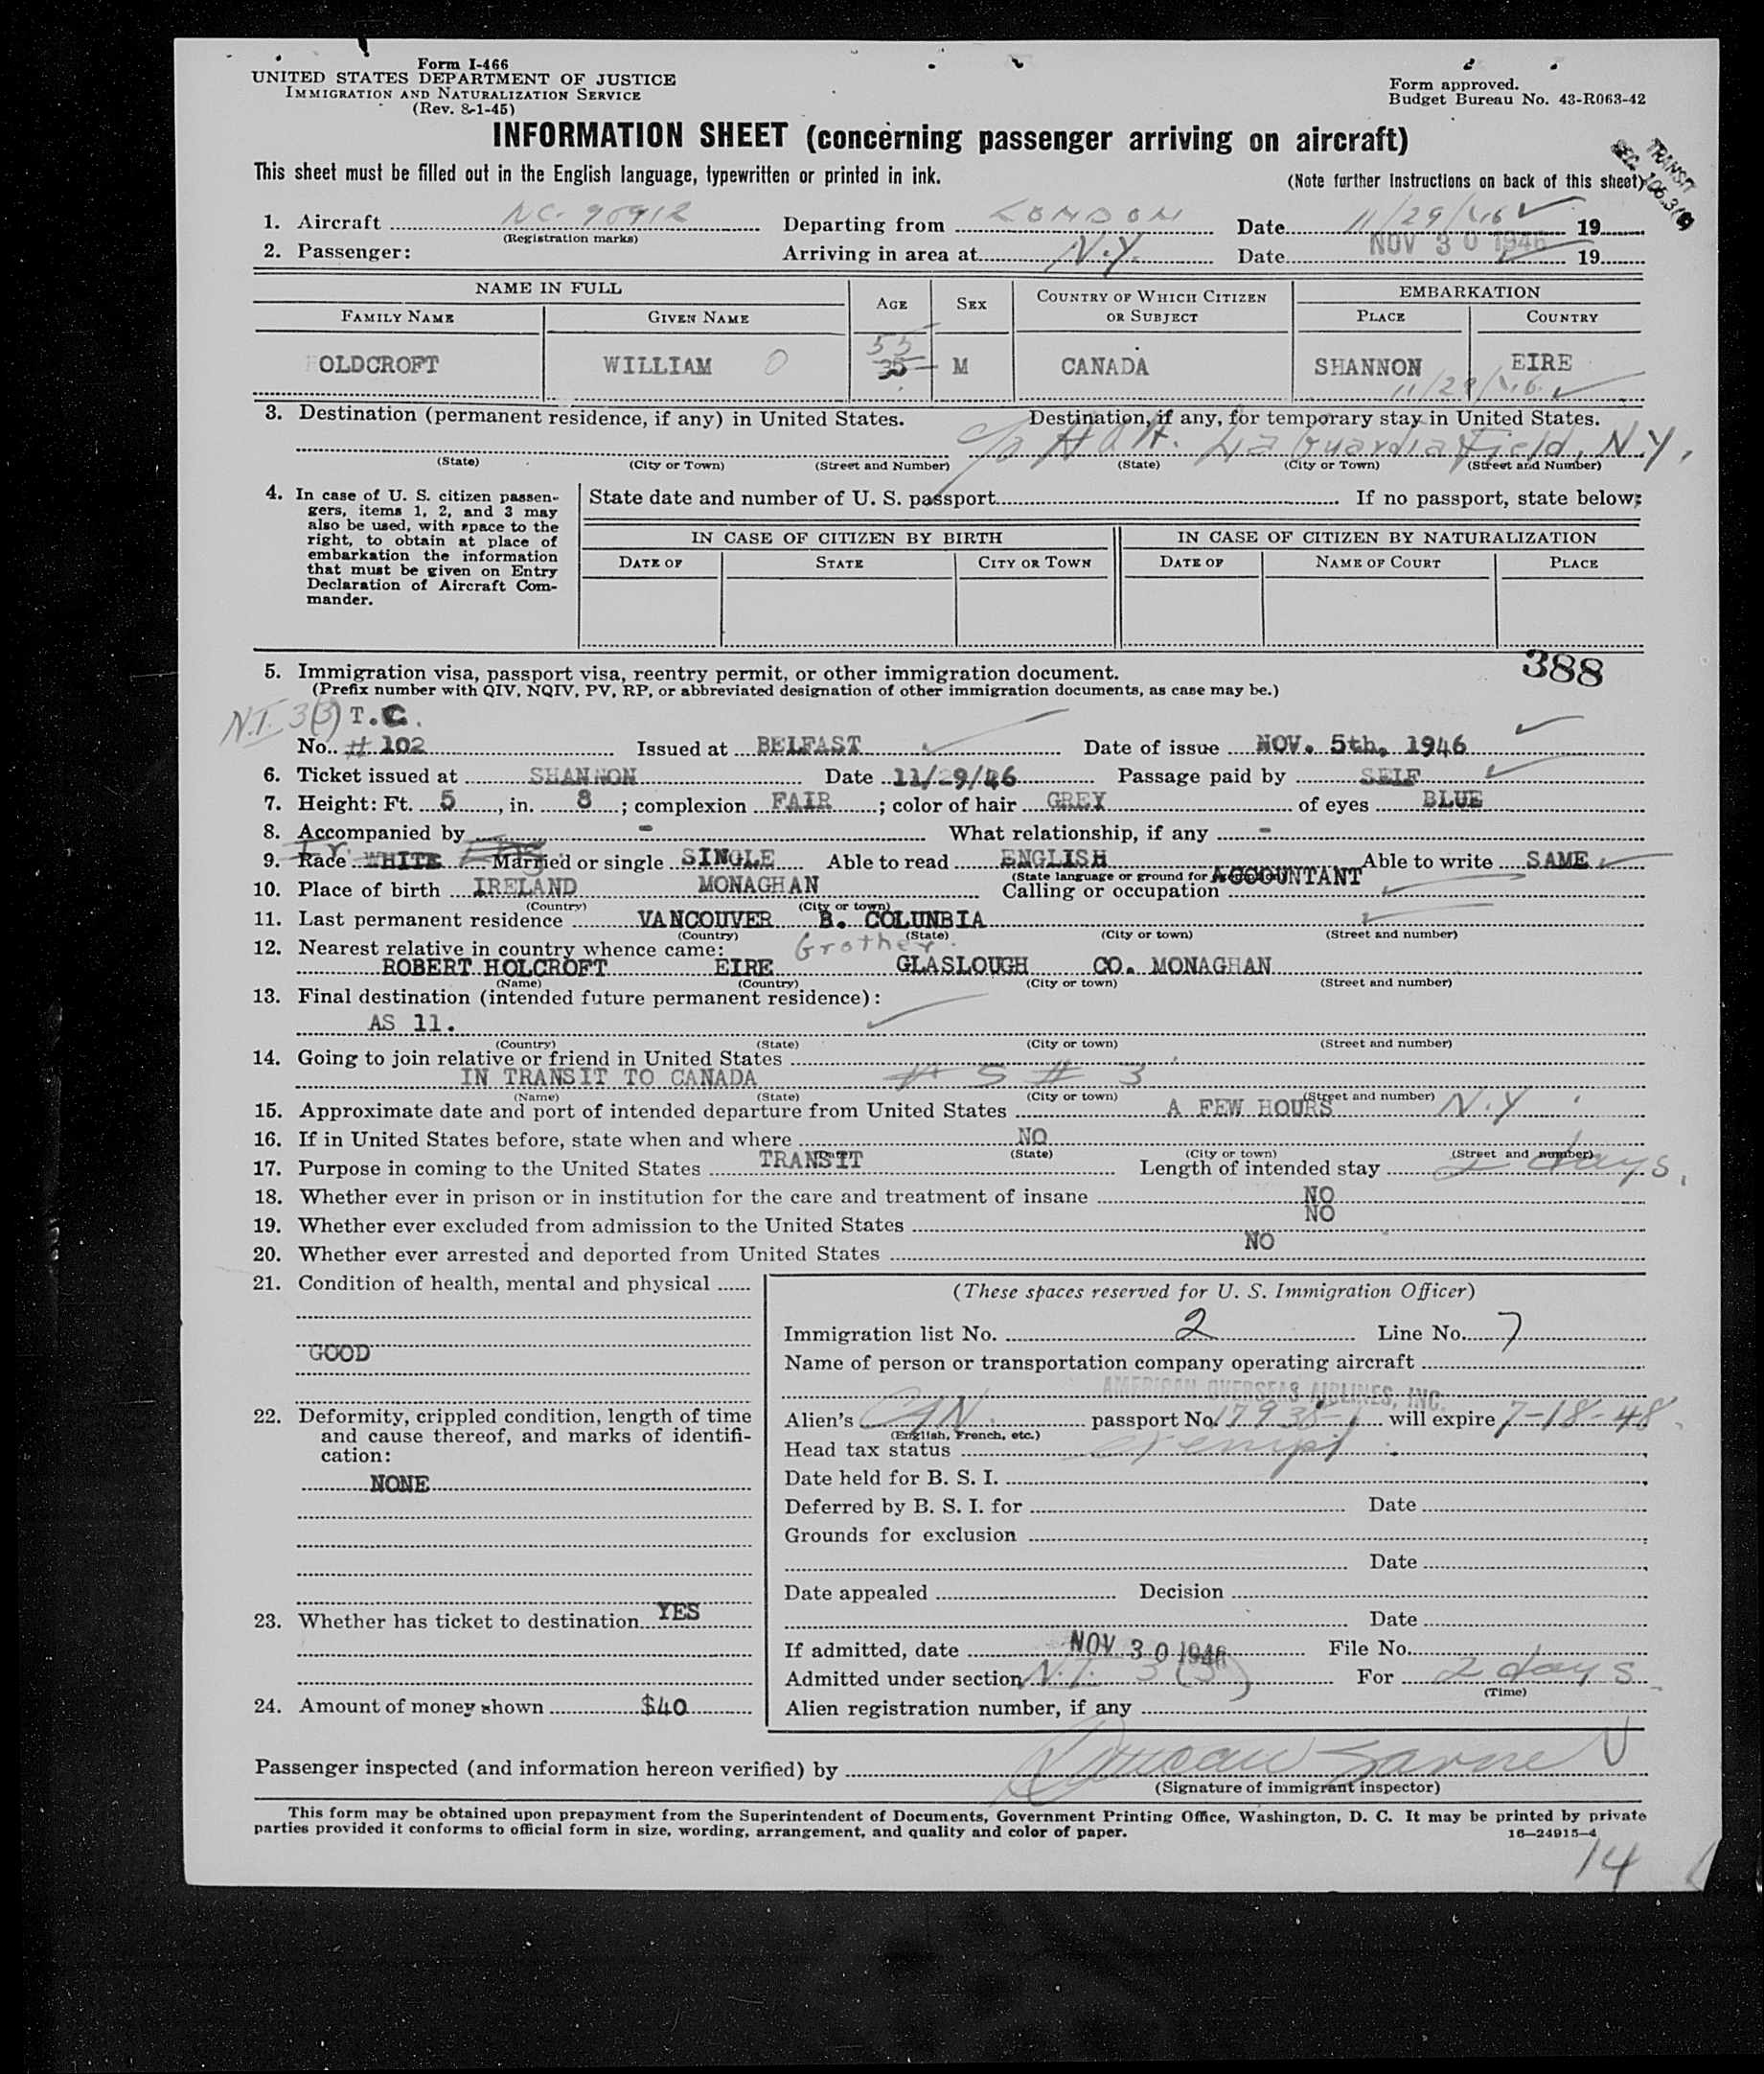 Form I-466
UNITED STATES DEPARTMENT OF JUSTICE
IMMIGRATION AND NATURALIZATION SERVICE
(Rev. 8-1-45)
Form approved.
Budget Bureau No. 43-R063-42
INFORMATION SHEET (concerning passenger arriving on aircraft)
This sheet must be filled out in the English language, typewritten or printed in ink.
(Note further instructions on back of this sheet)
TRANSIT
SEC. 106.3
1. Aircraft NC-90912 Departing from LONDON Date 11/29/46 19
(Registration marks)
2. Passenger: Arriving in area at N.Y. Date NOV 30 1946 19
NAME IN FULL AGE SEX COUNTRY OF WHICH CITIZEN OR SUBJECT EMBARKATION
FAMILY NAME GIVEN NAME PLACE COUNTRY
55
OLDCROFT WILLIAM O 35 M CANADA SHANNON EIRE
11/29/46
3. Destination (permanent residence, if any) in United States. Destination, if any, for temporary stay in United States.
c/o AOA. La Guardia Field, N.Y.
(State) (City or Town) (Street and Number) (State) (City or Town) (Street and Number)
4. In case of U. S. citizen passengers, items 1, 2, and 3 may also be used, with space to the right, to obtain at place of embarkation the information that must be given on Entry Declaration of Aircraft Commander.
State date and number of U. S. passport If no passport, state below:
IN CASE OF CITIZEN BY BIRTH IN CASE OF CITIZEN BY NATURALIZATION
DATE OF STATE CITY OR TOWN DATE OF NAME OF COURT PLACE
388
5. Immigration visa, passport visa, reentry permit, or other immigration document.
(Prefix number with QIV, NQIV, PV, RP, or abbreviated designation of other immigration documents, as case may be.)
N.I. 3(3) T.C.
No. # 102 Issued at BELFAST Date of issue NOV. 5th, 1946
6. Ticket issued at SHANNON Date 11/29/46 Passage paid by SELF
7. Height: Ft. 5, in. 8; complexion FAIR; color of hair GREY of eyes BLUE
8. Accompanied by - What relationship, if any -
9. Race WHITE Married or single SINGLE Able to read ENGLISH Able to write SAME
(State language or ground for
10. Place of birth IRELAND MONAGHAN Calling or occupation ACCOUNTANT
(Country) (City or town)
11. Last permanent residence VANCOUVER B. COLUNBIA
(Country) (State) (City or town) (Street and number)
12. Nearest relative in country whence came: Brother
ROBERT HOLCROFT EIRE GLASLOUGH CO. MONAGHAN
(Name) (Country) (City or town) (Street and number)
13. Final destination (intended future permanent residence):
AS 11.
(Country) (State) (City or town) (Street and number)
14. Going to join relative or friend in United States
IN TRANSIT TO CANADA AS # 3
(Name) (State) (City or town) (Street and number)
15. Approximate date and port of intended departure from United States A FEW HOURS N.Y.
16. If in United States before, state when and where NO
(State) (City or town) (Street and number)
17. Purpose in coming to the United States TRANSIT Length of intended stay 2 days.
18. Whether ever in prison or in institution for the care and treatment of insane NO
19. Whether ever excluded from admission to the United States NO
20. Whether ever arrested and deported from United States NO
21. Condition of health, mental and physical
GOOD
22. Deformity, crippled condition, length of time and cause thereof, and marks of identification:
NONE
23. Whether has ticket to destination YES
24. Amount of money shown $40
(These spaces reserved for U. S. Immigration Officer)
Immigration list No. 2 Line No. 7
Name of person or transportation company operating aircraft
AMERICAN OVERSEAS AIRLINES, INC.
Alien's CAN. passport No. will expire 7-18-48
(English, French, etc.)
Head tax status exempt
Date held for B. S. I.
Deferred by B. S. I. for Date
Grounds for exclusion
Date
Date appealed Decision
Date
If admitted, date NOV 30 1946 File No.
Admitted under section N.I. 3(3) For 2 days
(Time)
Alien registration number, if any
Passenger inspected (and information hereon verified) by
(Signature of immigrant inspector)
This form may be obtained upon prepayment from the Superintendent of Documents, Government Printing Office, Washington, D. C. It may be printed by private
parties provided it conforms to official form in size, wording, arrangement, and quality and color of paper.
16—24915-4
14